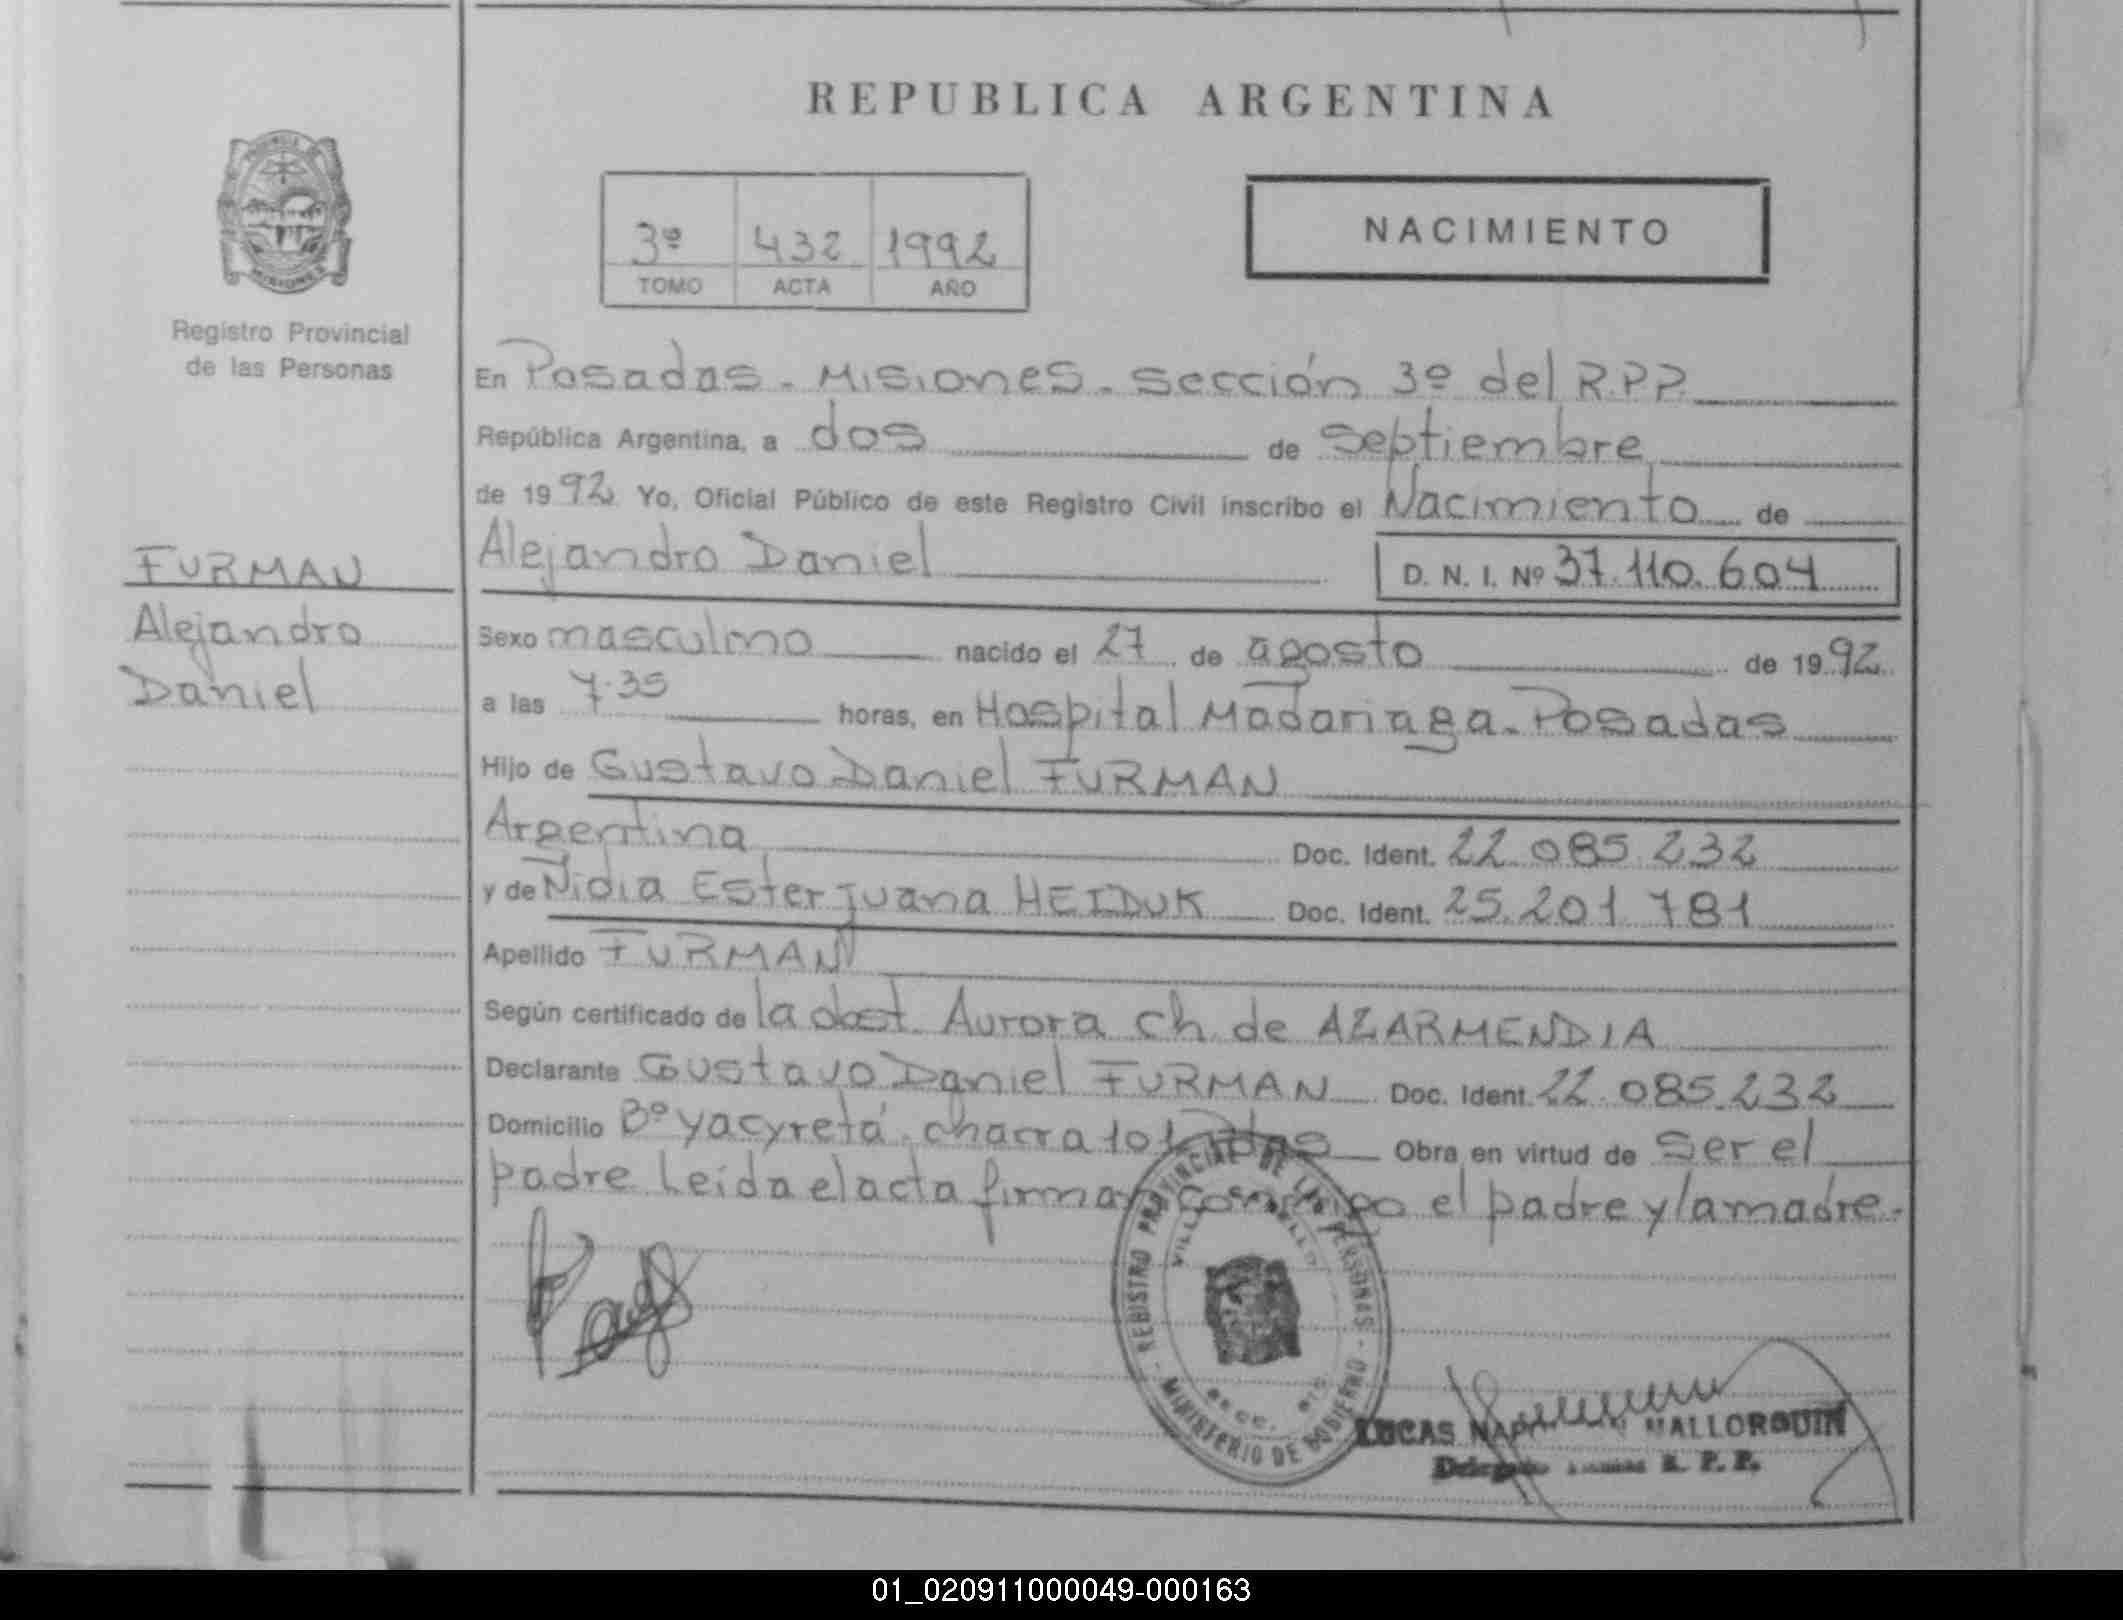 REPUBLICA ARGENTINA
3º 432 1992
TOMO ACTA AÑO
NACIMIENTO
Registro Provincial
de las Personas
En Posadas - Misiones - Sección 3º del R.P.P.
República Argentina, a dos de Septiembre
de 1992 Yo, Oficial Público de este Registro Civil inscribo el Nacimiento de
Alejandro Daniel D. N. I. Nº 37.110.604
FURMAN
Alejandro
Daniel
Sexo masculino nacido el 27 de agosto de 1992
a las 7.35 horas, en Hospital Madariaga - Posadas
Hijo de Gustavo Daniel FURMAN
Argentina Doc. Ident. 22.085.232
y de Nidia Ester Juana HEIDUK Doc. Ident. 25.201.781
Apellido FURMAN
Según certificado de la obst. Aurora Ch. de AZARMENDIA
Declarante Gustavo Daniel FURMAN Doc. Ident. 22.085.232
Domicilio Bº yacyretá - chacra 101 Pdas Obra en virtud de ser el
padre Leida el acta firman conmigo el padre y la madre.
REGISTRO PROVINCIAL DE LAS PERSONAS
MINISTERIO DE GOBIERNO
LUCAS MALLORQUIN
R. P. P.
01_020911000049-000163